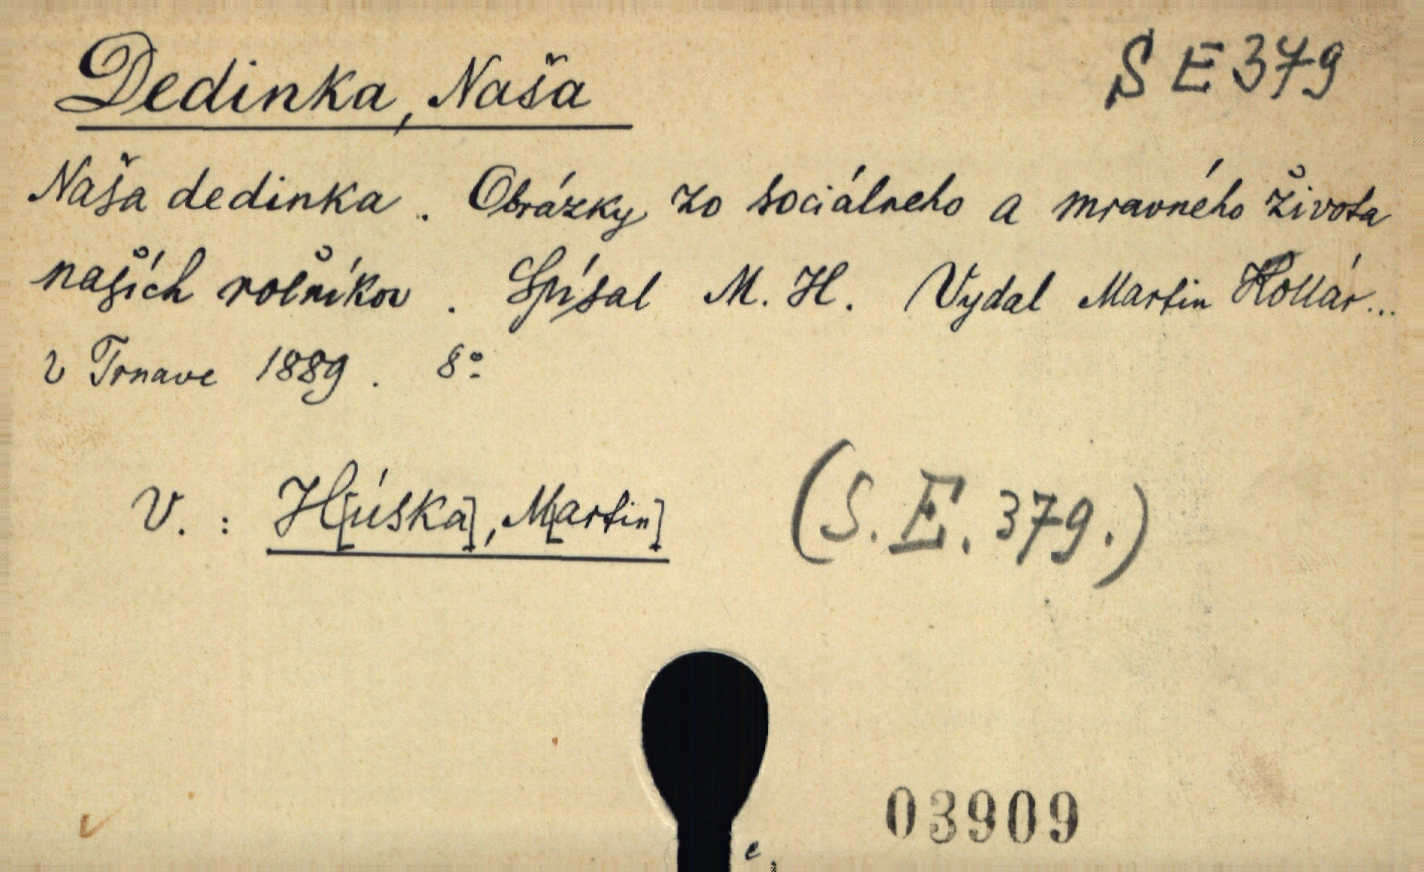 Dedinka, Naša
S E 379
Naša dedinka. Obrázky zo sociálneho a mravného života
našich rolníkov. Spísal M. H. Vydal Martin Kollár...
v Trnave 1889. 8°
V.: H[úska], M[artin]
(S. E. 379.)
03909